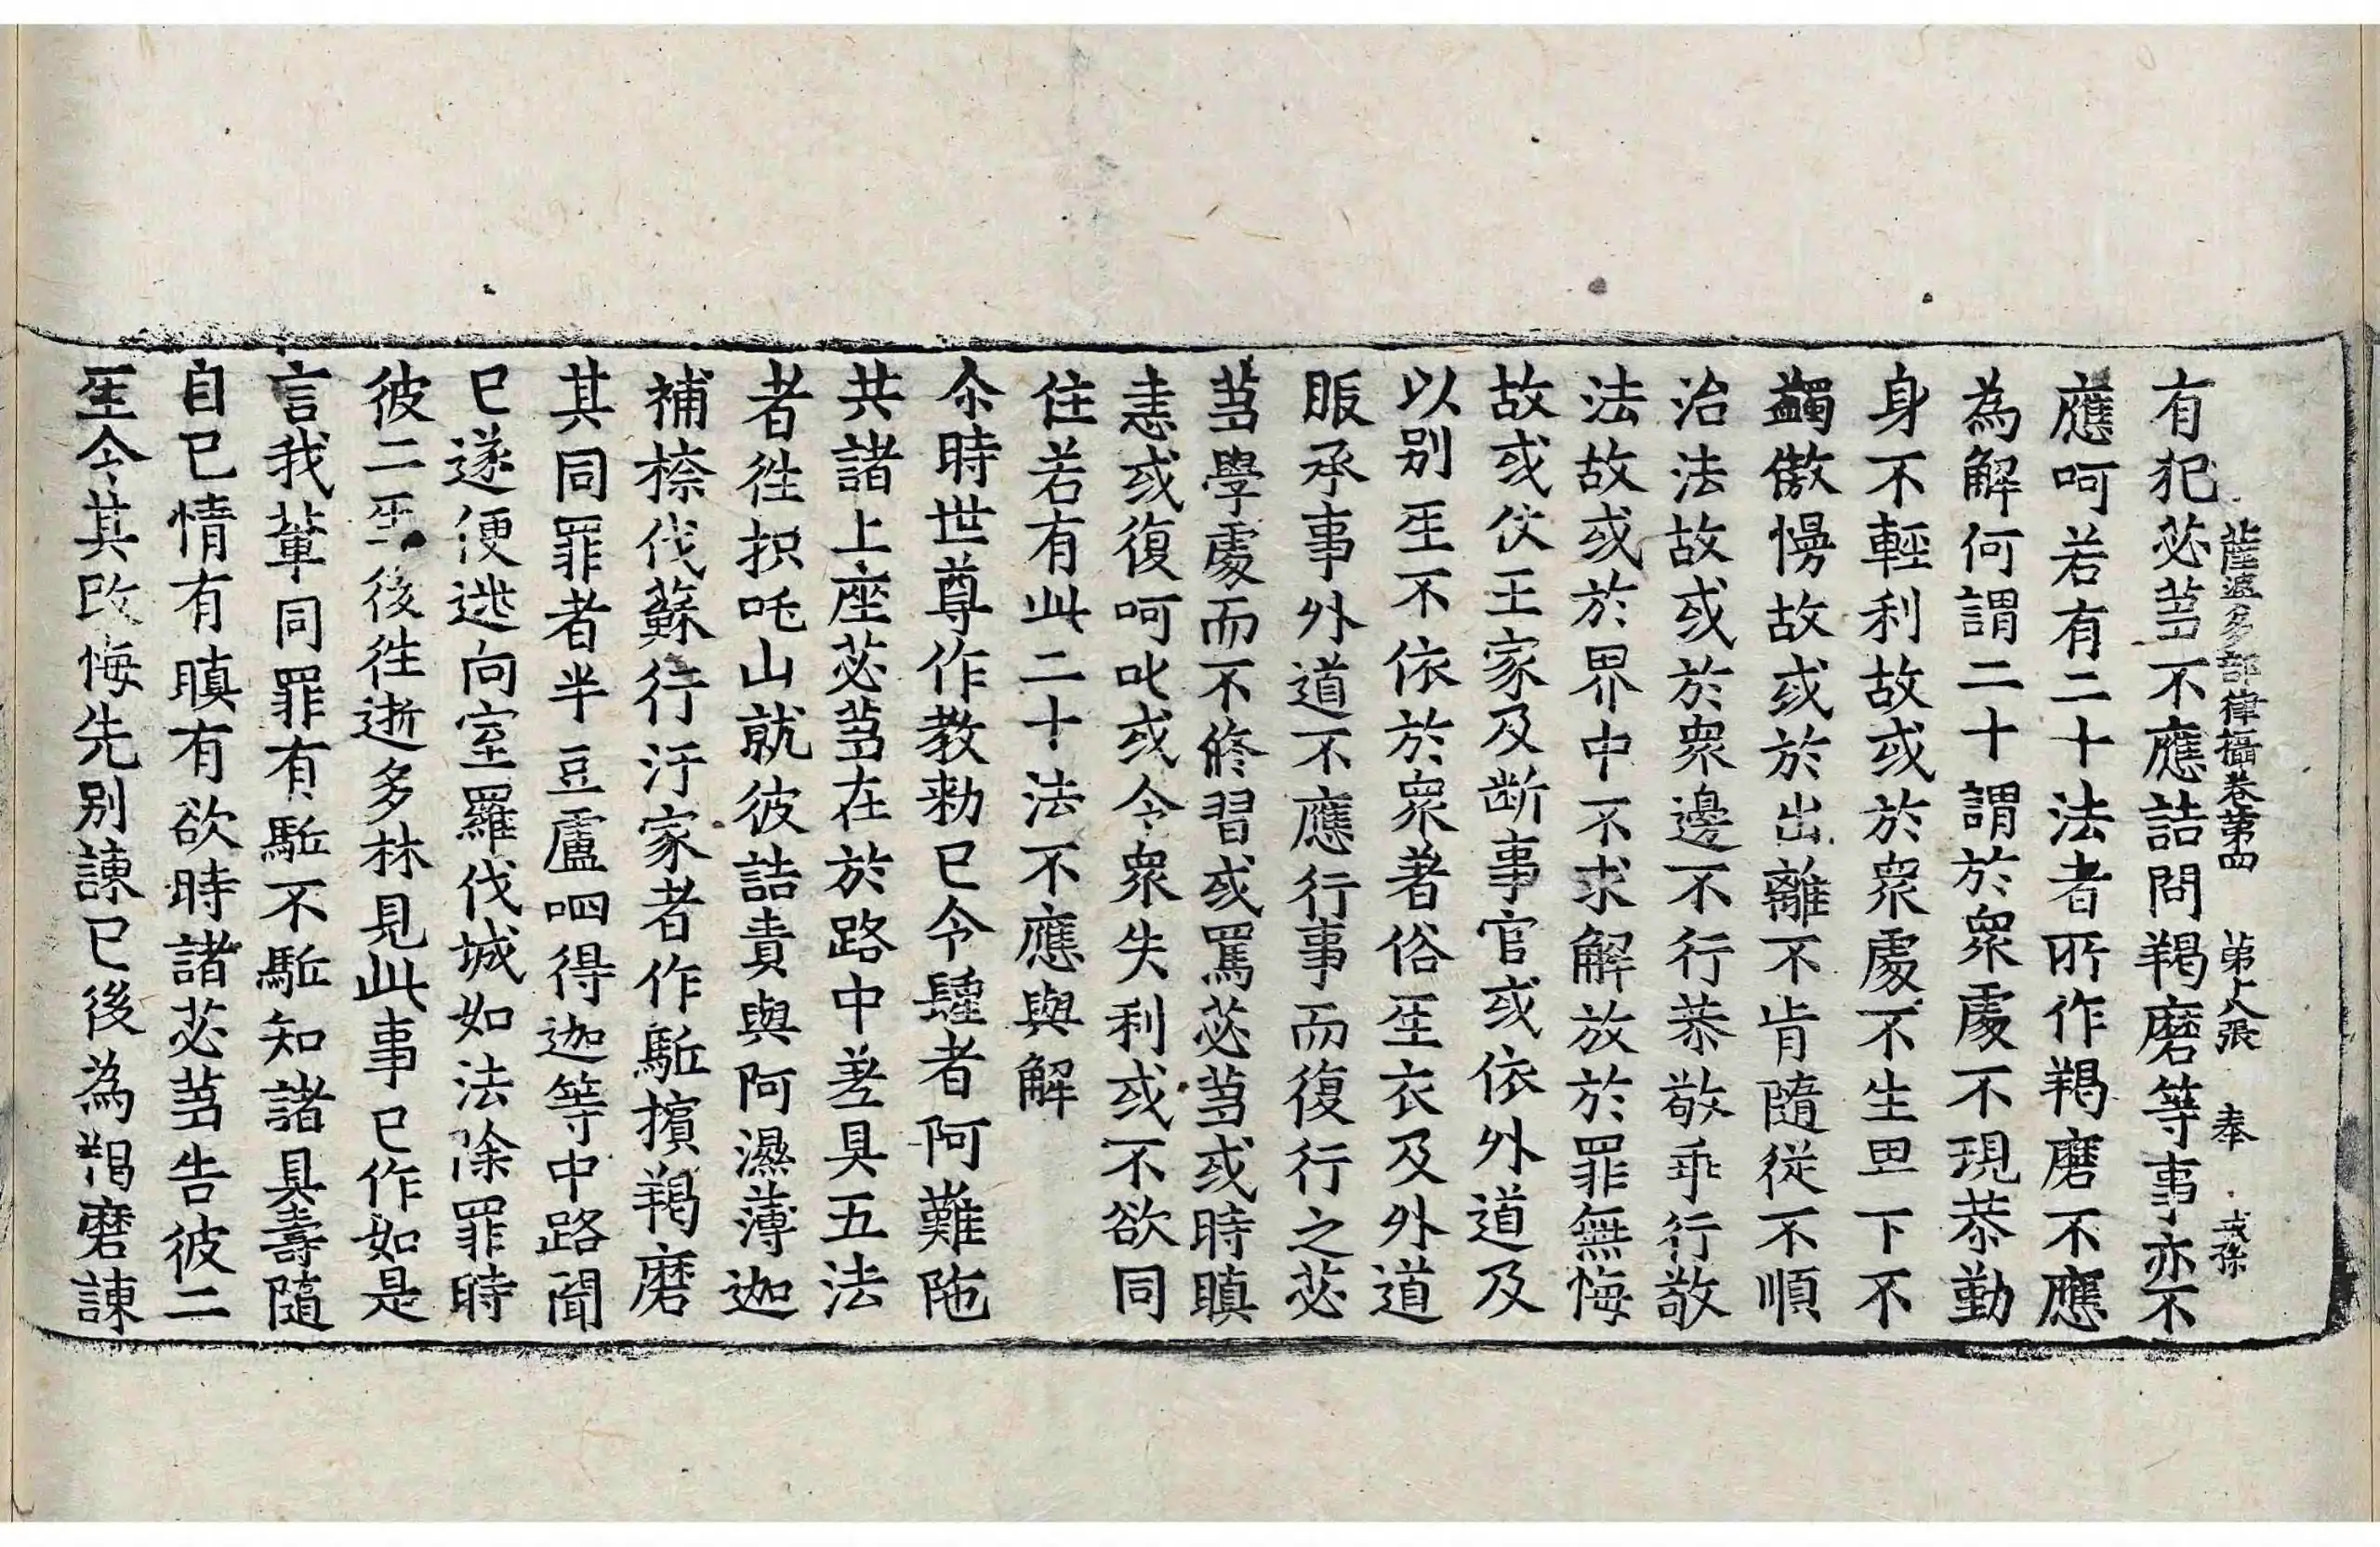 薩婆多部律攝卷第四 第八張 奉 戒孫
有犯苾蒭不應詰問羯磨等事亦不
應呵若有二十法者所作羯磨不應
為解何謂二十謂於衆處不現恭勤
身不輕利故或於衆處不生畢下不
蠲傲慢故或於出離不肯隨從不順
治法故或於衆邊不行恭敬乖行敬
法故或於界中不求解放於罪無悔
故或伏王家及斷事官或依外道及
以別𤯔不依於衆著俗𤯔衣及外道
服承事外道不應行事而復行之苾
蒭學處而不修習或罵苾蒭或時瞋
恚或復呵叱或令衆失利或不欲同
住若有此二十法不應與解
尒時世尊作教勑已令𨤲者阿難陁
共諸上座苾蒭在於路中差具五法
者徃枳吒山就彼詰責與阿濕薄迦
補捺伐蘇行汙家者作駈擯羯磨
其同罪者半豆盧呬得迦等中路聞
已遂便逃向室羅伐城如法除罪時
彼二𤯔後徃逝多林見此事已作如是
言我輩同罪有駈不駈知諸具壽隨
自已情有瞋有欲時諸苾蒭告彼二
𤯔令其改悔先別諫已後為羯磨諫